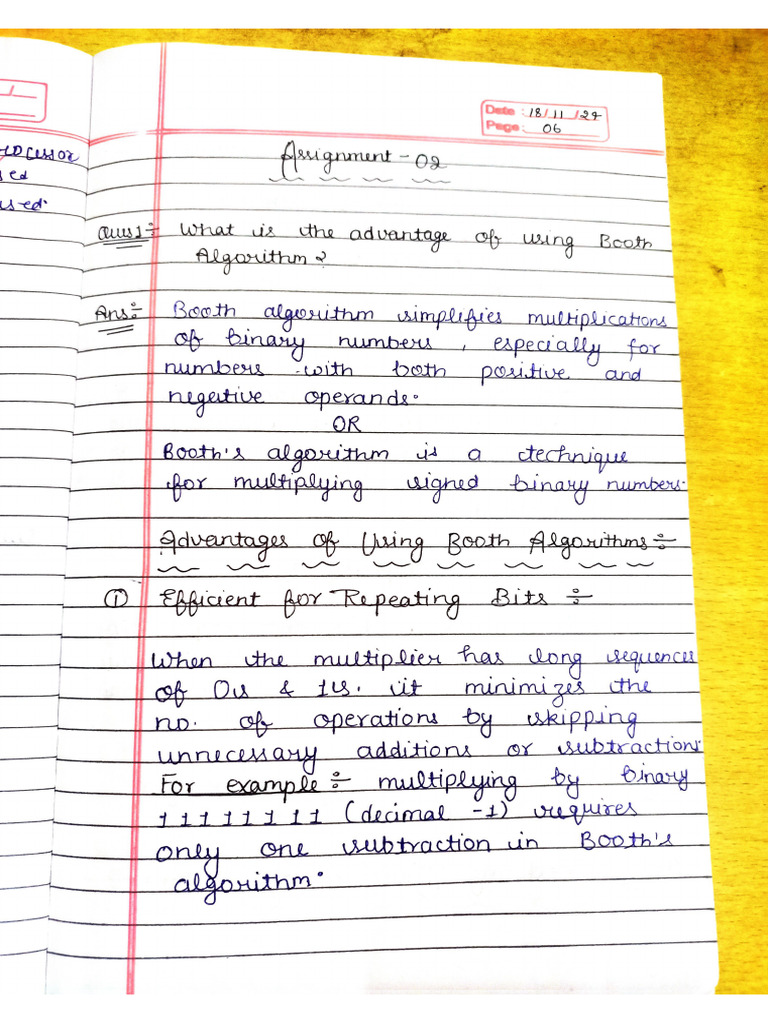 Date : 18/11/24
Page: 06
Assignment - 02
Ques1÷ What is the advantage of using Booth
Algorithm?
Ans÷ Booth algorithm simplifies multiplications
of binary numbers, especially for
numbers with both positive and
negative operands.
OR
Booth's algorithm is a technique
for multiplying signed binary numbers.
Advantages of Using Booth Algorithms÷
① Efficient for Repeating Bits ÷
When the multiplier has long sequences
of 0s & 1s. it minimizes the
no. of operations by skipping
unnecessary additions or subtractions.
For example ÷ multiplying by binary
11111111 (decimal -1) requires
only one subtraction in Booth's
algorithm.